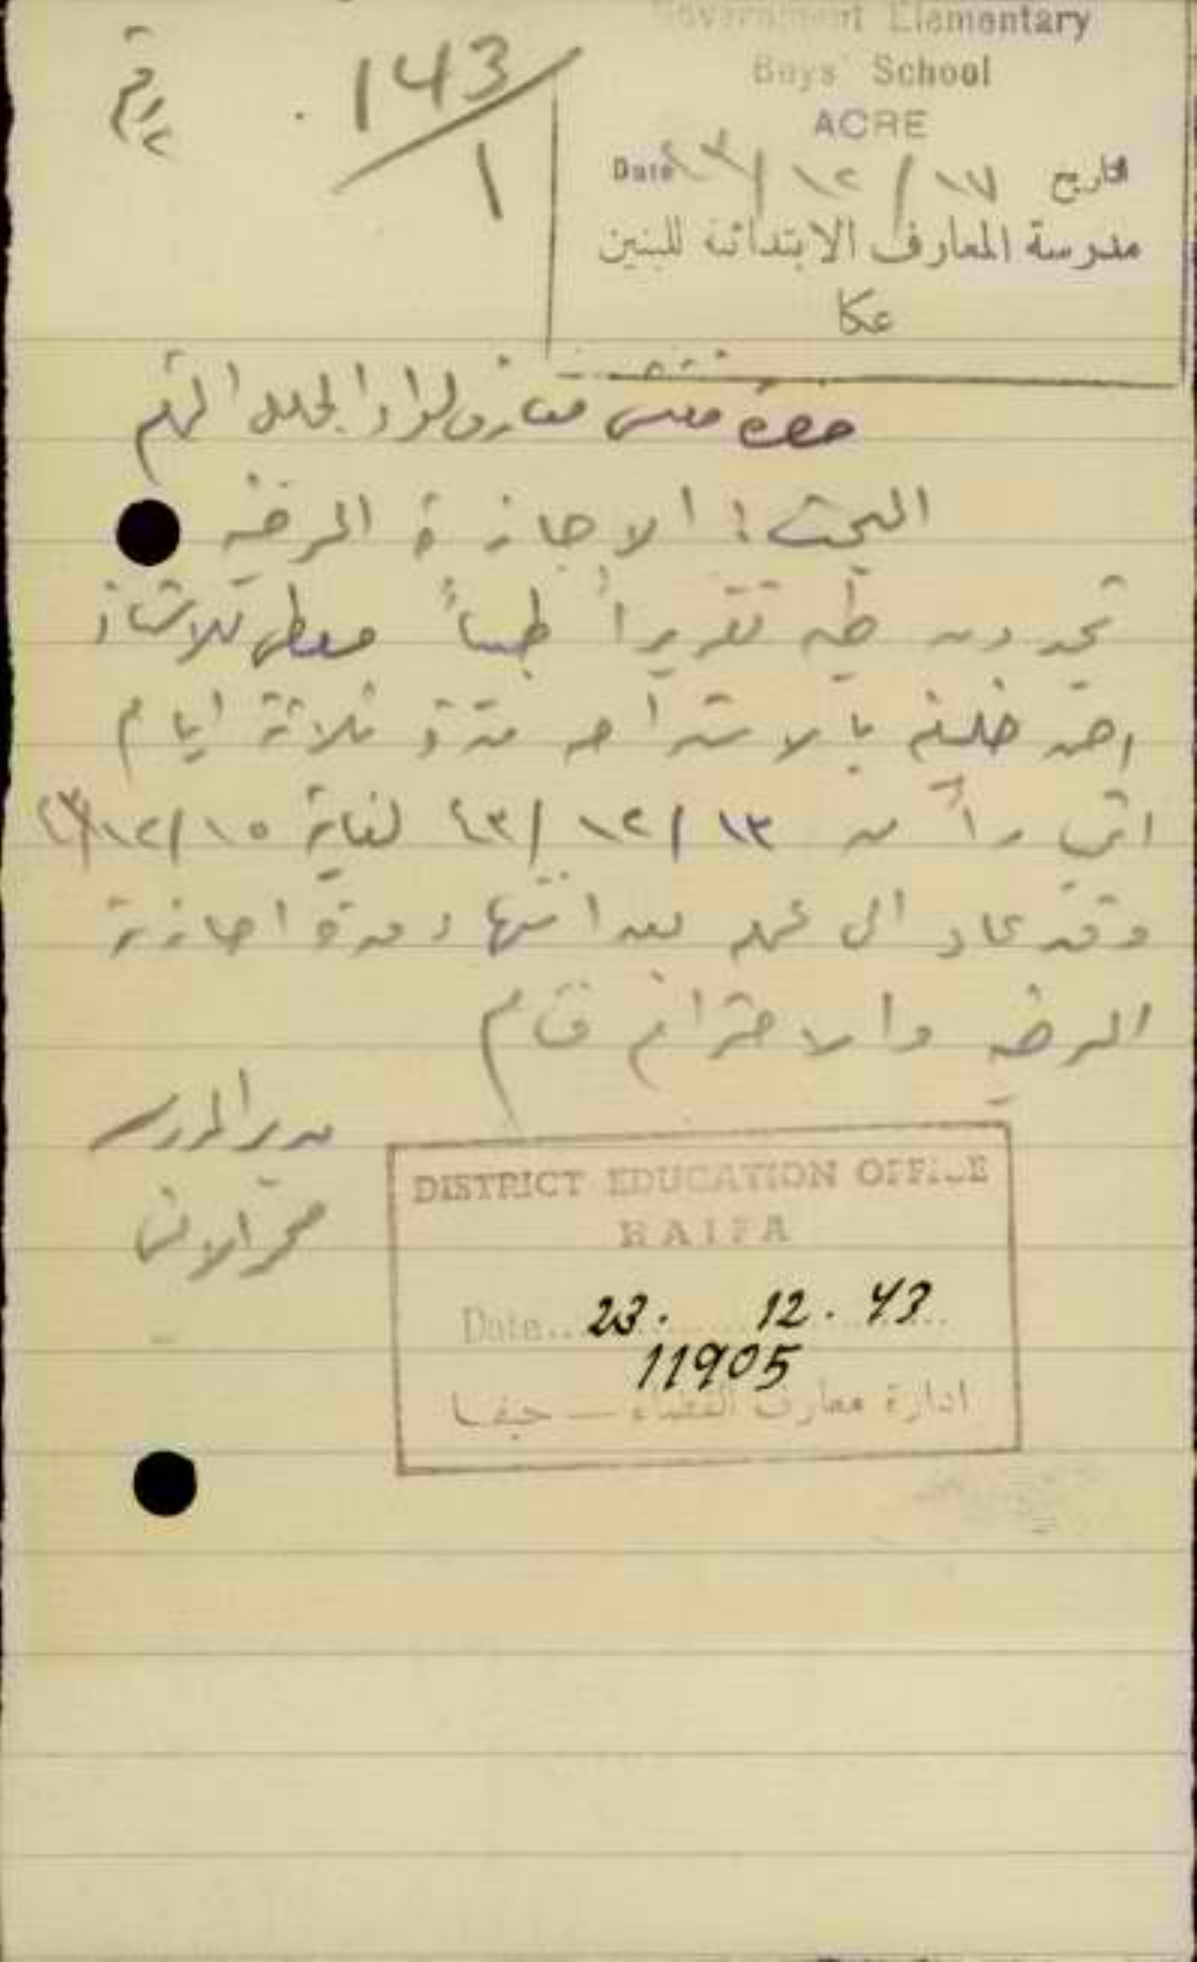 Government Elementary
Boys' School
ACRE
Date ٤٣/١٢/١٧ التاريخ
مدرسة المعارف الابتدائية للبنين
عكا
143/1
حضرة مفتش معارف لواء الجليل المحترم
البحث: الاجازة المرضية
تجدون طيه تقريراً طبياً معطى للاستاذ
احمد خليفة بالاستراحة مدة ثلاثة ايام
من ٤٣/١٢/١٣ لغاية ٤٣/١٢/١٥
وقد عاد الى عمله بعد انتهاء مدة اجازته
المرضية والاحترام ختام
مدير المدرسة
DISTRICT EDUCATION OFFICE
HAIFA
Date.. 23. 12. 43
11905
ادارة معارف القضاء — حيفا